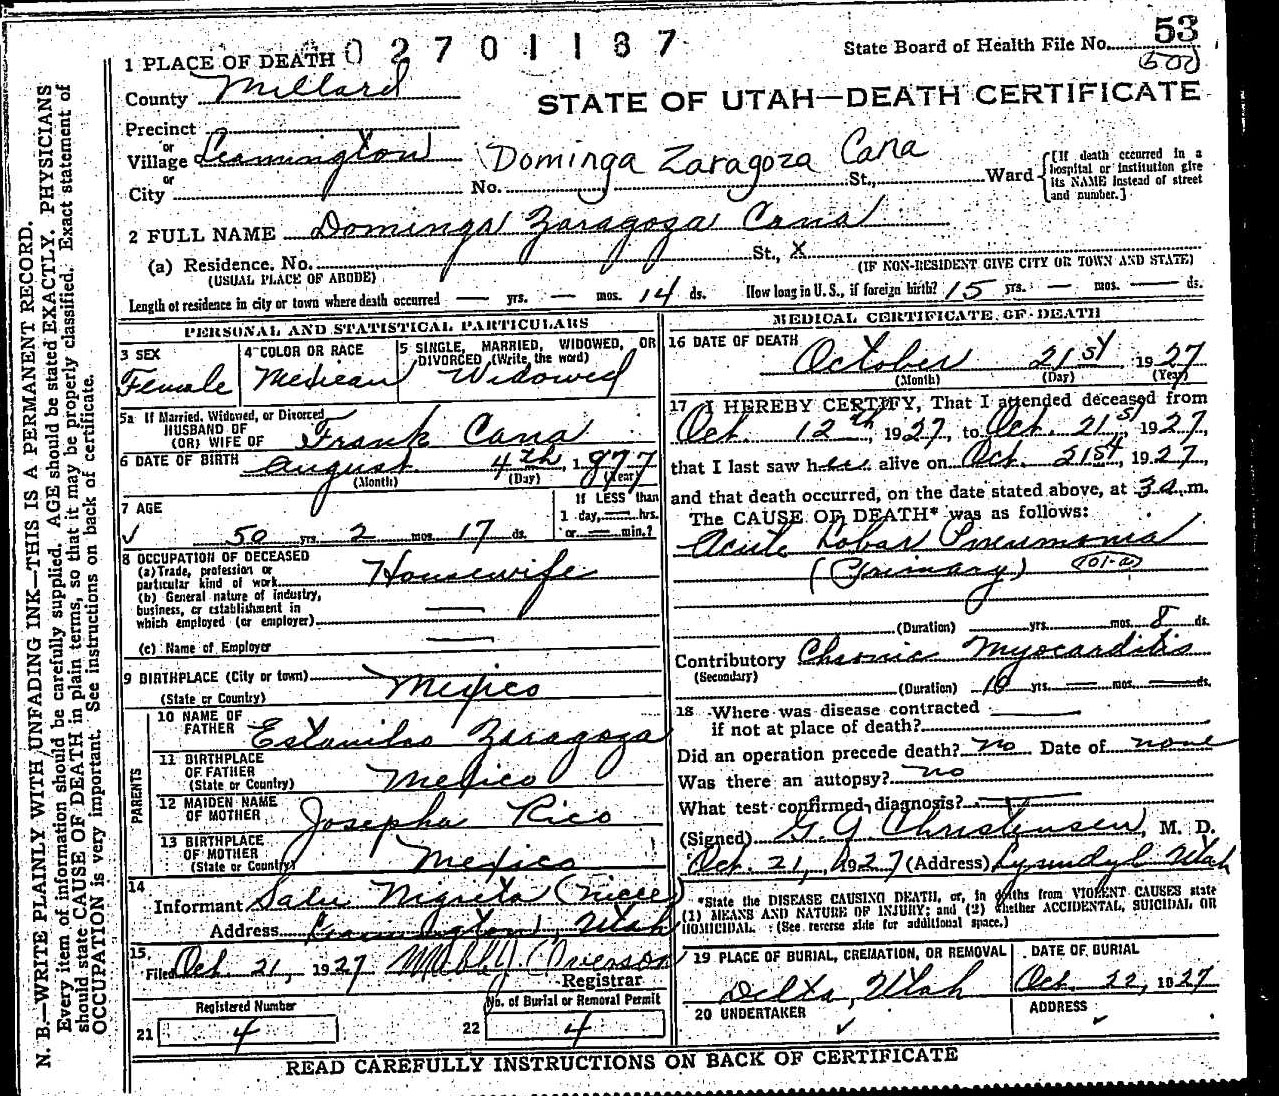 02701187
State Board of Health File No. 53
1 PLACE OF DEATH
County Millard
STATE OF UTAH—DEATH CERTIFICATE
Precinct
or
Village Leamington
Dominga Zaragoza Cana
or
City
No. St., Ward
[If death occurred in a hospital or institution give its NAME instead of street and number.]
2 FULL NAME Dominga Zaragoza Cana
(a) Residence. No. St., X
(USUAL PLACE OF ABODE) (IF NON-RESIDENT GIVE CITY OR TOWN AND STATE)
Length of residence in city or town where death occurred — yrs. — mos. 14 ds. How long in U. S., if foreign birth? 15 yrs. — mos. — ds.
PERSONAL AND STATISTICAL PARTICULARS
3 SEX
Female
4 COLOR OR RACE
Mexican
5 SINGLE, MARRIED, WIDOWED, OR DIVORCED (Write the word)
Widowed
5a If Married, Widowed, or Divorced
HUSBAND OF
(OR) WIFE OF Frank Cana
6 DATE OF BIRTH August 4th, 1877
(Month) (Day) (Year)
7 AGE
✓ 50 yrs. 2 mos. 17 ds.
If LESS than
1 day, — hrs.
or — min.?
8 OCCUPATION OF DECEASED
(a) Trade, profession or
particular kind of work Housewife
(b) General nature of industry,
business, or establishment in
which employed (or employer) —
(c) Name of Employer —
9 BIRTHPLACE (City or town)
(State or Country) Mexico
PARENTS
10 NAME OF
FATHER Zaragoza
11 BIRTHPLACE
OF FATHER
(State or Country) Mexico
12 MAIDEN NAME
OF MOTHER Josepha Rico
13 BIRTHPLACE
OF MOTHER
(State or Country) Mexico
14
Informant Nigreta (niece)
Address Leamington, Utah
15
Filed Oct. 21, 1927 Overson
Registrar
Registered Number
21 4
No. of Burial or Removal Permit
22 4
MEDICAL CERTIFICATE OF DEATH
16 DATE OF DEATH
October 21st, 1927
(Month) (Day) (Year)
17 I HEREBY CERTIFY, That I attended deceased from
Oct. 12th, 1927, to Oct. 21st, 1927,
that I last saw her alive on Oct. 21st, 1927,
and that death occurred, on the date stated above, at 3 a. m.
The CAUSE OF DEATH* was as follows:
Acute Lobar Pneumonia
(Primary) 101-a
(Duration) yrs. mos. 8 ds.
Contributory Chronic Myocarditis
(Secondary)
(Duration) 10 yrs. — mos. — ds.
18 Where was disease contracted
if not at place of death? —
Did an operation precede death? no Date of none
Was there an autopsy? no
What test confirmed diagnosis? —
(Signed) G. J. Christensen, M. D.
Oct. 21, 1927 (Address) Lynndyl Utah
*State the DISEASE CAUSING DEATH, or, in deaths from VIOLENT CAUSES state
(1) MEANS AND NATURE OF INJURY; and (2) whether ACCIDENTAL, SUICIDAL OR
HOMICIDAL. (See reverse side for additional space.)
19 PLACE OF BURIAL, CREMATION, OR REMOVAL
Delta, Utah
DATE OF BURIAL
Oct. 22, 1927
20 UNDERTAKER
✓
ADDRESS
✓
READ CAREFULLY INSTRUCTIONS ON BACK OF CERTIFICATE
N. B.—WRITE PLAINLY WITH UNFADING INK—THIS IS A PERMANENT RECORD.
Every item of information should be carefully supplied. AGE should be stated EXACTLY. PHYSICIANS
should state CAUSE OF DEATH in plain terms, so that it may be properly classified. Exact statement of
OCCUPATION is very important. See instructions on back of certificate.